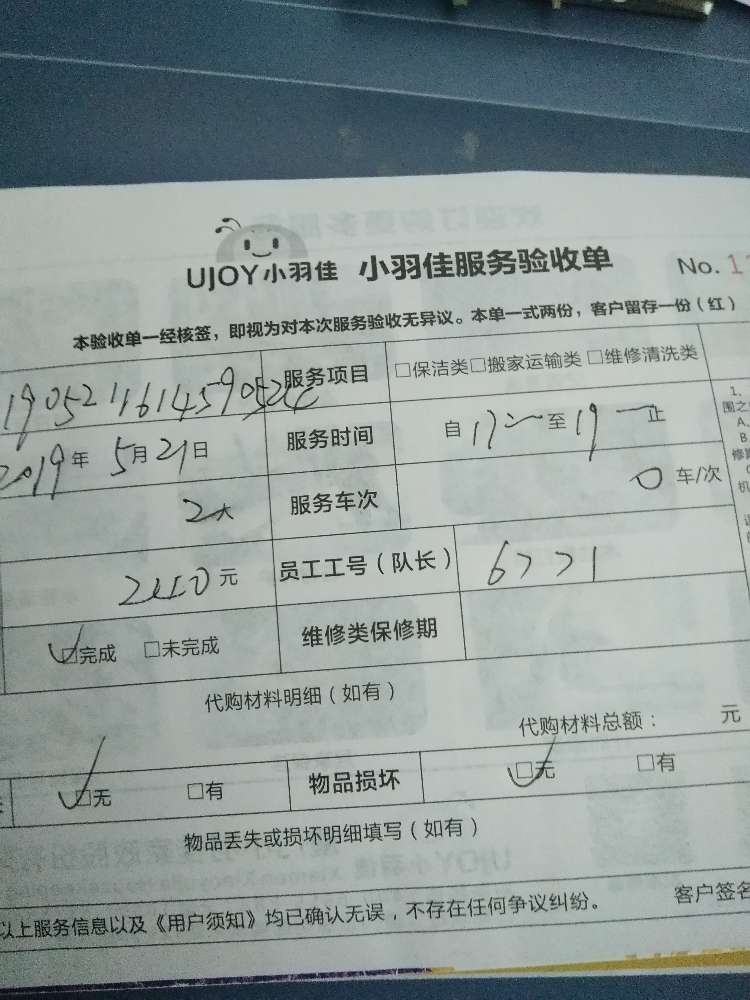 UJOY小羽佳 小羽佳服务验收单 No.
本验收单一经核签，即视为对本次服务验收无异议。本单一式两份，客户留存一份（红）
服务项目 □保洁类□搬家运输类 □维修清洗类
2019年 5月21日 服务时间 自 至 止
服务车次 0 车/次
元 员工工号（队长） 6771
□完成 □未完成 维修类保修期
代购材料明细（如有）
代购材料总额： 元
□无 □有 物品损坏 □无 □有
物品丢失或损坏明细填写（如有）
以上服务信息以及《用户须知》均已确认无误，不存在任何争议纠纷。 客户签名